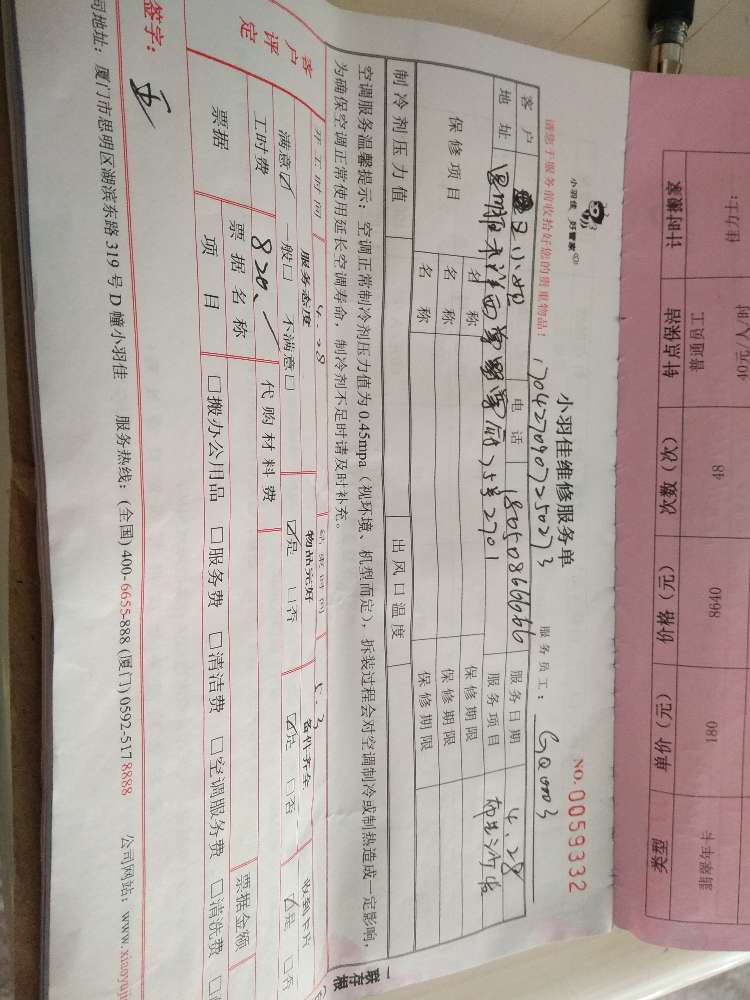 小羽佳 好管家
小羽佳维修服务单
NO.0059332
请您于服务前收拾好您的贵重物品！
1704270907250273
服务员工：
GQ0003
客户
电话
18050866666
服务日期
4.28
地址
2701
服务项目
保修项目
名称
保修期限
名称
保修期限
名称
保修期限
制冷剂压力值
出风口温度
空调服务温馨提示：空调正常制冷剂压力值为0.45mpa（视环境、机型而定），拆装过程会对空调制冷或制热造成一定影响，
为确保空调正常使用延长空调寿命，制冷剂不足时请及时补充。
开工时间
4.28
结束时间
5.3
客户评定
服务态度
物品完好
备件齐全
收到卡片
满意☑ 一般□ 不满意□
☑是 □否
☑是 □否
☑是 □否
工时费
820.
代购材料费
票据
票据名称
票据金额
项目
□搬办公用品 □服务费 □清洁费 □空调服务费 □清洗费
签字：
司地址：厦门市思明区湖滨东路319号D幢小羽佳 服务热线：(全国)400-6655-888(厦门)0592-5178888 公司网站：www.xiaoyuji
一联存根
类型
单价（元）
价格（元）
次数（次）
针点保洁
计时搬家
翡翠年卡
180
8640
48
普通员工
佳力士：
40元/人/时